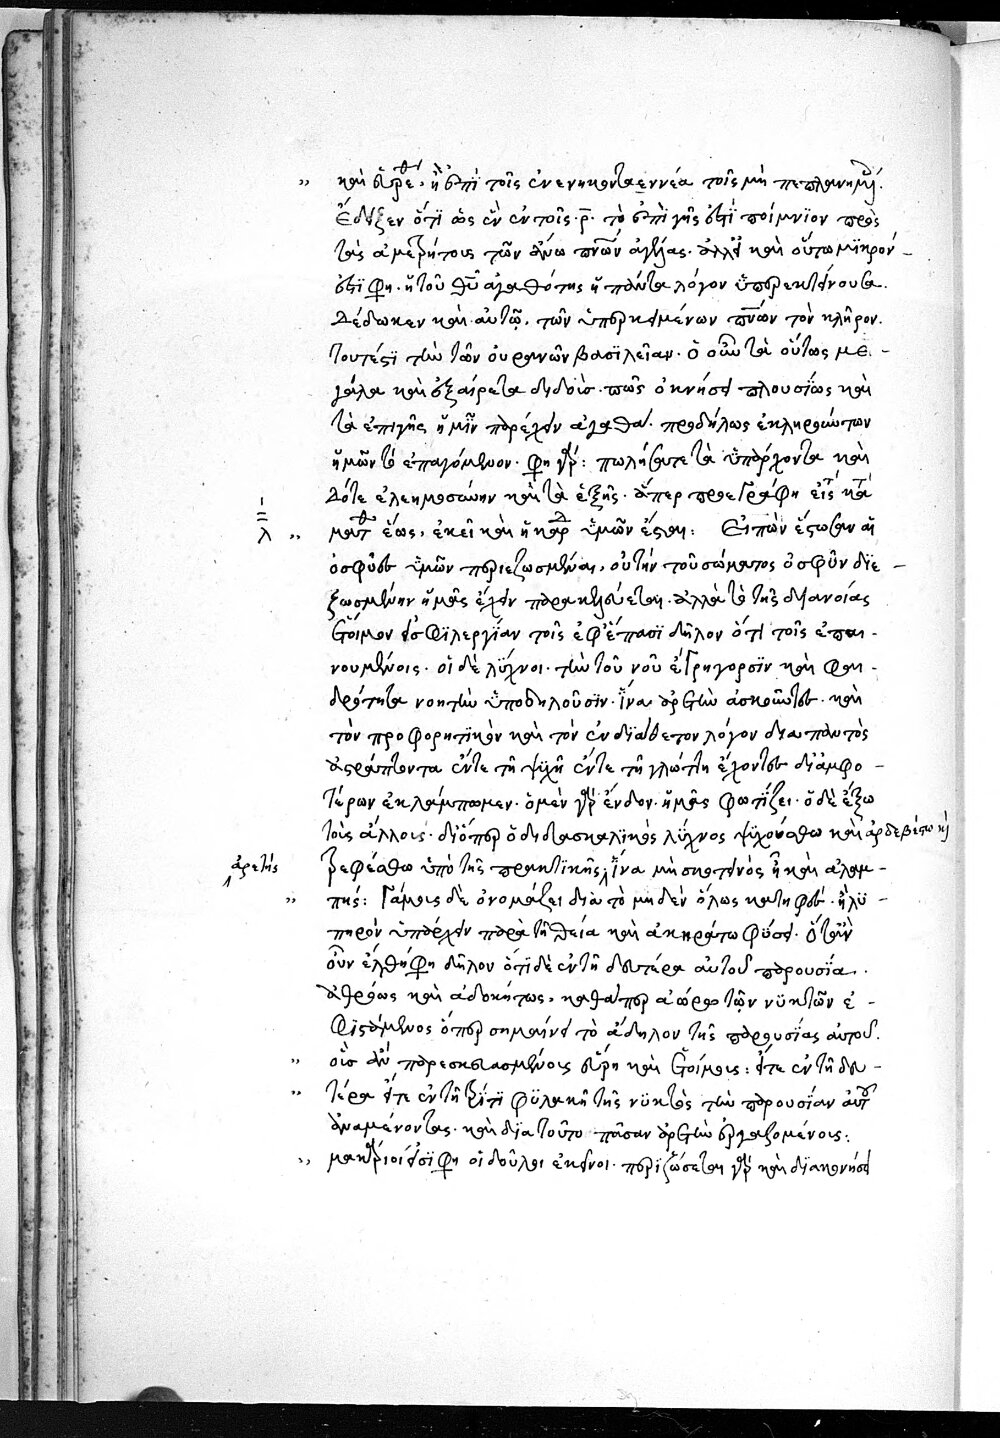 καὶ εὑρεθ, ἢ ἐπὶ τοῖς ἐνενηκονταεννέα τοῖς μὴ πεπλανημ.
ἔδειξεν ὅτι ὡς ἓν ἐν τοῖς ρ τὸ ἐπὶ γῆς ἐστὶ ποίμνιον πρὸς
τὰς ἀμετρήτους τῶν ἄνω πνων ἀγέλας. ἀλλ' εἰ καὶ οὕτω μικρόν
ἐστι φη. ἡ τοῦ θυ ἀγαθότης ἡ πάντα λόγον ὑπερεκτείνουσα.
δέδωκεν καὶ αὐτῷ, τῶν ὑπερκειμένων πνων τὸν κλῆρον.
τουτέστι τὴν τῶν οὐρανῶν βασιλείαν. ὁ οὖν τὰ οὕτως με
γάλα καὶ ἐξαίρετα διδοὺς. πῶς ὀκνήσει πλουσίως καὶ
τὰ ἐπιγῆς ἡμῖν παρέχειν ἀγαθά. προδήλως ἐκληρούντων
ἡμῶν τὸ ἐπαγόμενον. φη γάρ: πωλήσατε τὰ ὑπάρχοντα καὶ
δότε ἐλεημοσύνην καὶ τὰ ἑξῆς. ἅπερ προεγράφη εἰς τ κατὰ
ματθ ἕως, ἐκεῖ καὶ ἡ καρδ ὑμῶν ἔσται: Εἰπὼν ἔστωσαν αἱ
ὀσφύες ὑμῶν περιεζωσμέναι, οὐ τὴν τοῦ σώματος ὀσφῦν διε
ζωσμένην ἡμᾶς ἔχειν παρακελεύεται. ἀλλὰ τὸ τῆς διανοίας
ἕτοιμον εἰς φιλεργίαν τοῖς ἐφ' ἅπασι δῆλον ὅτι τοῖς ἐπαι
νουμένοις. οἱ δὲ λύχνοι. τὴν τοῦ νοῦ ἐγρήγορσιν καὶ φαι
δρότητα νοητὴν ὑποδηλοῦσιν. ἵνα ἀρετὴν ἀσκοῦντες. καὶ
τὸν προφορητικὸν καὶ τὸν ἐνδιάθετον λόγον διαπαντὸς
ἀστράπτοντα ἔν τε τῇ ψυχῇ ἔν τε τῇ γλώττη ἔχοντες δι' ἀμφο
τέρων ἐκλάμπωμεν. ὁ μὲν γὰρ ἔνδον. ἡμᾶς φωτίζει. ὁ δὲ ἔξω
τοῖς ἄλλοις. διόπερ ὁ διδασκαλικὸς λύχνος
τρεφέσθω ὑπὸ τῆς πρακτικῆς ἀρετῆς ἵνα μὴ σκοτεινὸς ᾖ καὶ ἀλαμ
πής: Γάμοις δὲ ὀνομάζει διὰ τὸ μηδὲν ὅλως κατηφὲς. ἢ λυ
πηρὸν ὑπάρχειν παρὰ τῇ θεία καὶ ἀκηράτω φύσει. ὅταν
οὖν ἔλθη φη δῆλον ὅτι δὲ ἐν τῇ δευτέρα αὐτοῦ παρουσία.
ἀθρόως καὶ ἀδοκήτως, καθάπερ ἀωρία τῶν νυκτῶν ἐ
φιστάμενος ὅπερ σημαίνει τὸ ἄδηλον τῆς παρουσίας αὐτοῦ.
οἷς ἂν παρεσκευασμένοις εὕρη καὶ ἑτοίμοις: εἴτε ἐν τῇ δευ
τέρα εἴτε ἐν τῇ τρίτη φυλακῇ τῆς νυκτὸς τὴν παρουσίαν αὐτοῦ
ἀναμένοντας. καὶ διατοῦτο πᾶσαν ἀρετὴν ἐργαζομένοις:
μακάριοι εἰσί φη οἱ δοῦλοι ἐκεῖνοι. περιζώσεται γὰρ καὶ διακονήσει